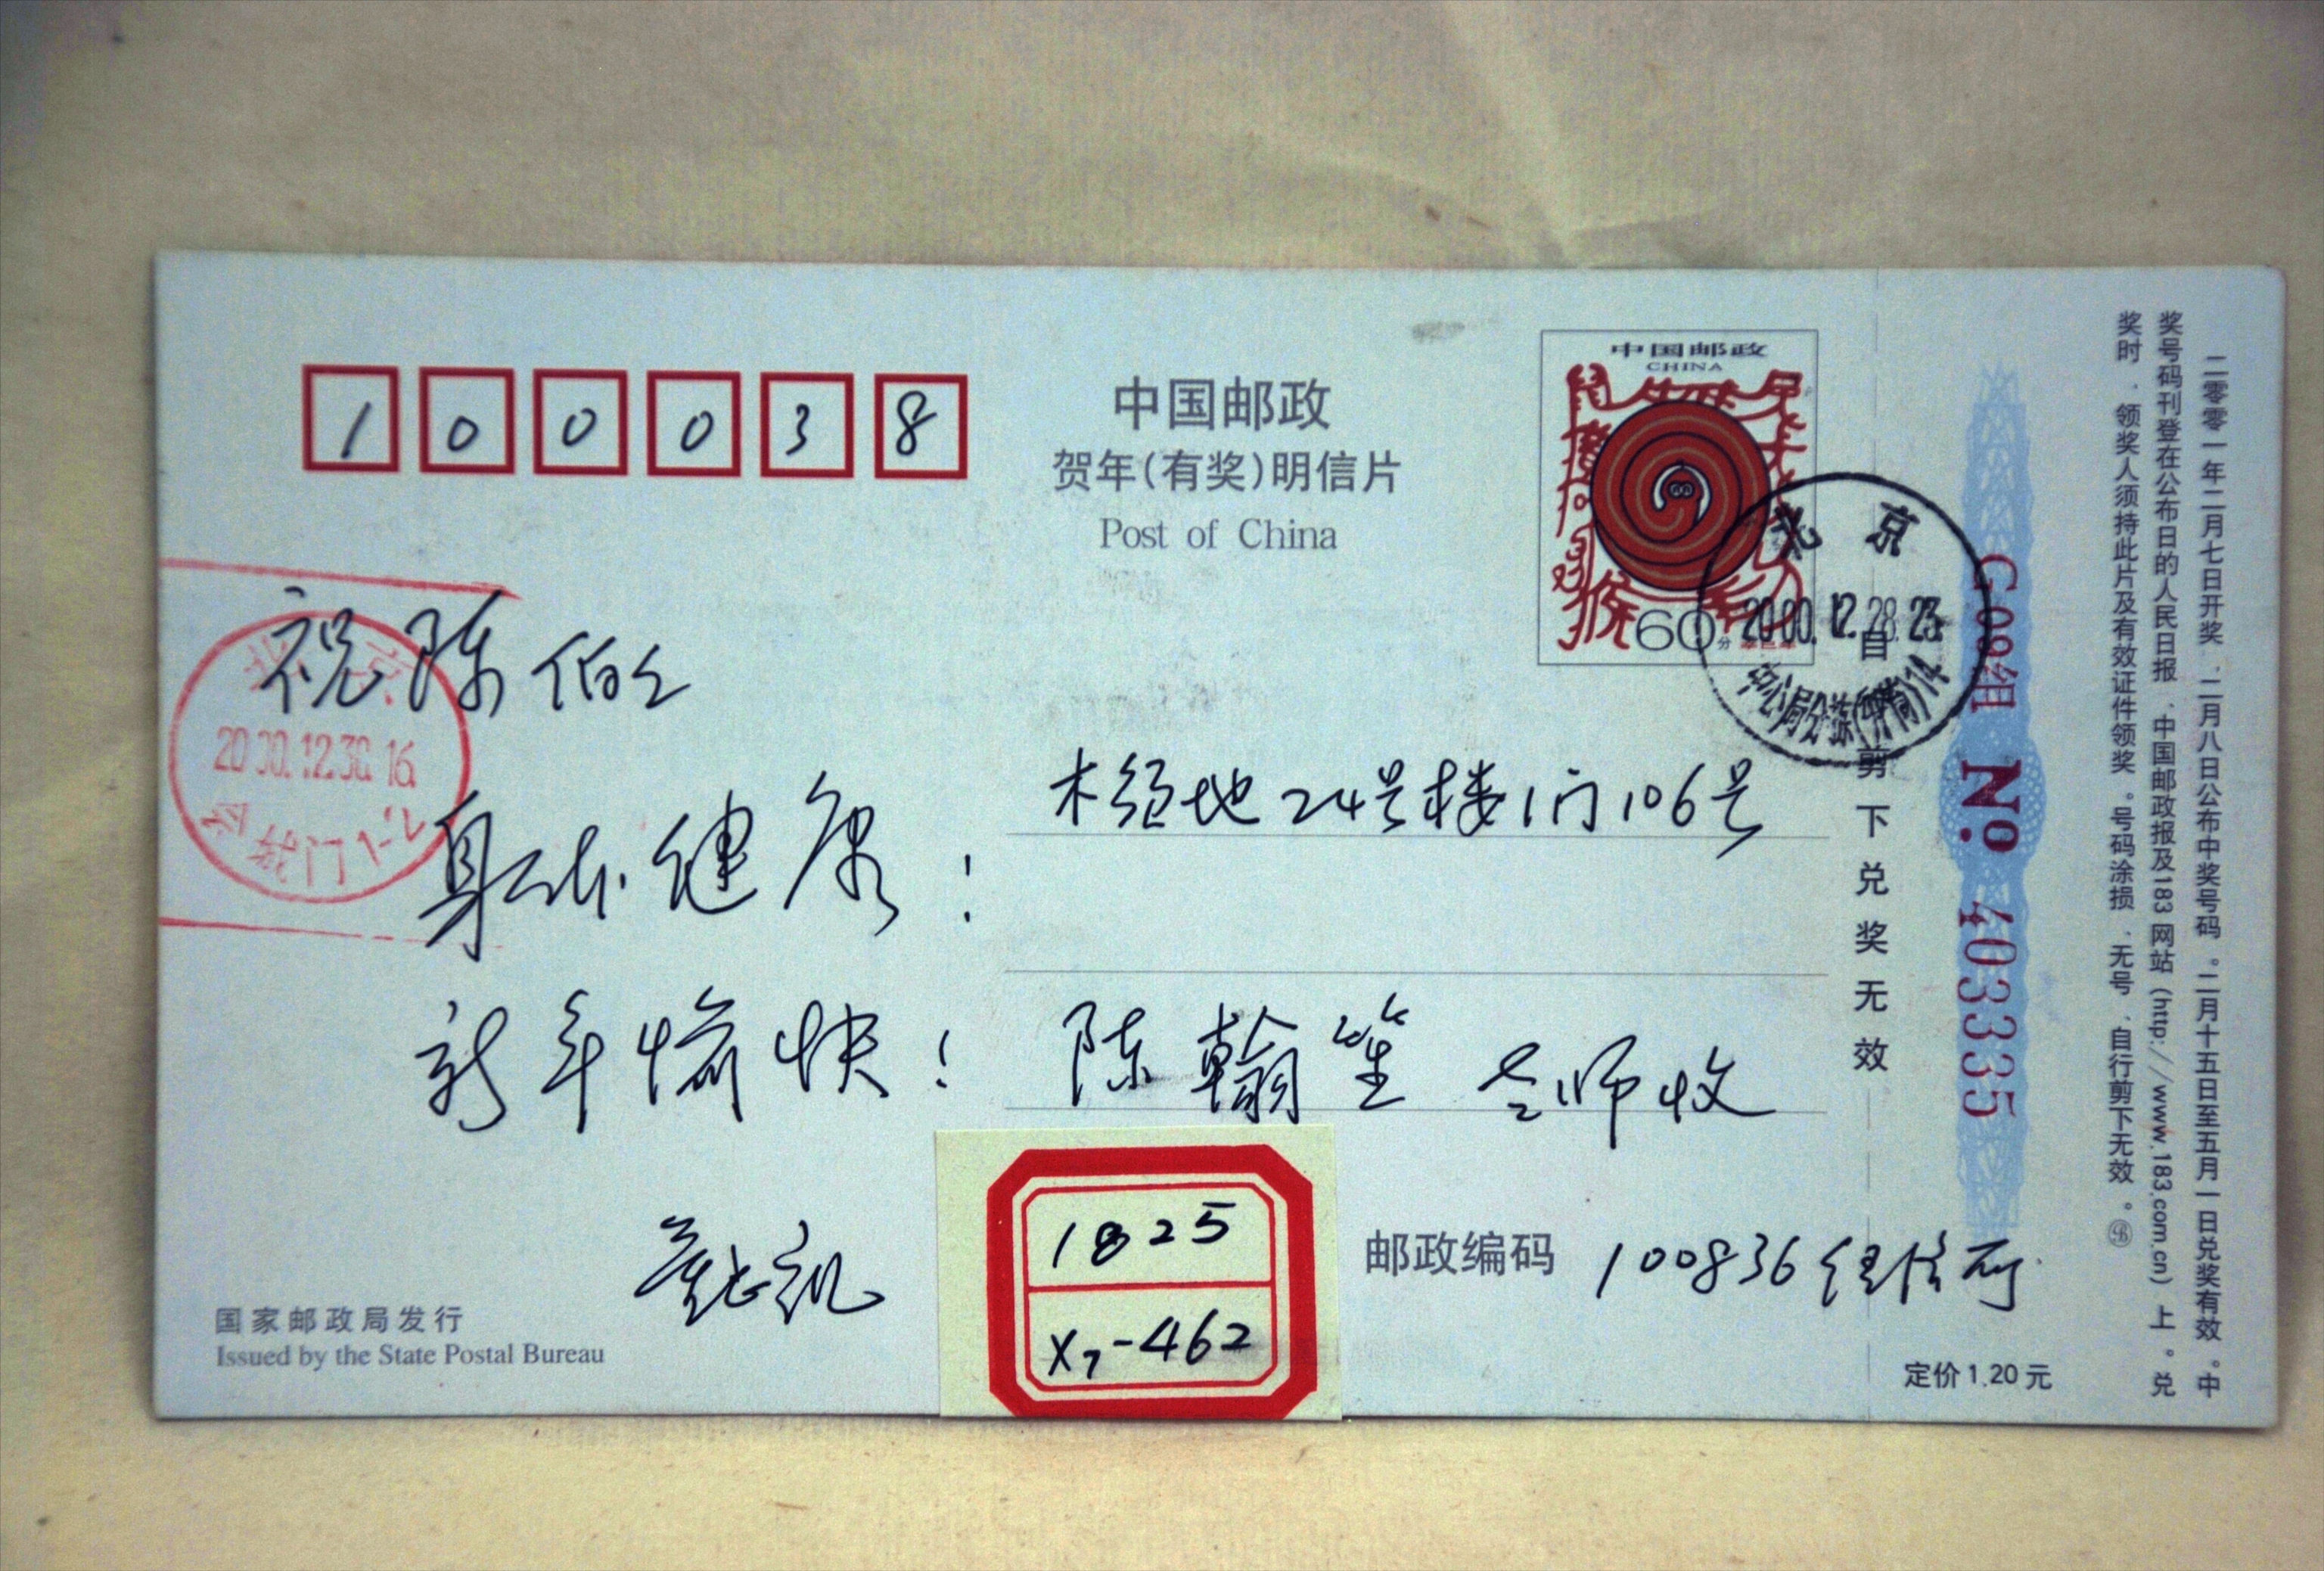 100038
中国邮政
贺年(有奖)明信片
Post of China
中国邮政
CHINA
60分
北京
2000.12.28.23
北京
2000.12.30.16
祝陈伯人
身体健康！
新年愉快！
木樨地24号楼1门106号
陈翰笙 老师收
1825
X7-462
邮政编码 100836
国家邮政局发行
Issued by the State Postal Bureau
自
剪下兑奖无效
G09组 No. 403335
定价1.20元
二零零一年二月七日开奖，二月八日公布中奖号码。二月十五日至五月一日兑奖有效。中
奖号码刊登在公布日的人民日报、中国邮政报及183网站(http://www.183.com.cn)上。兑
奖时，领奖人须持此片及有效证件领奖。号码涂损、无号、自行剪下无效。